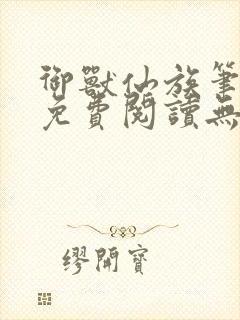 御獸仙族筆
免費閱讀無
繆開寶